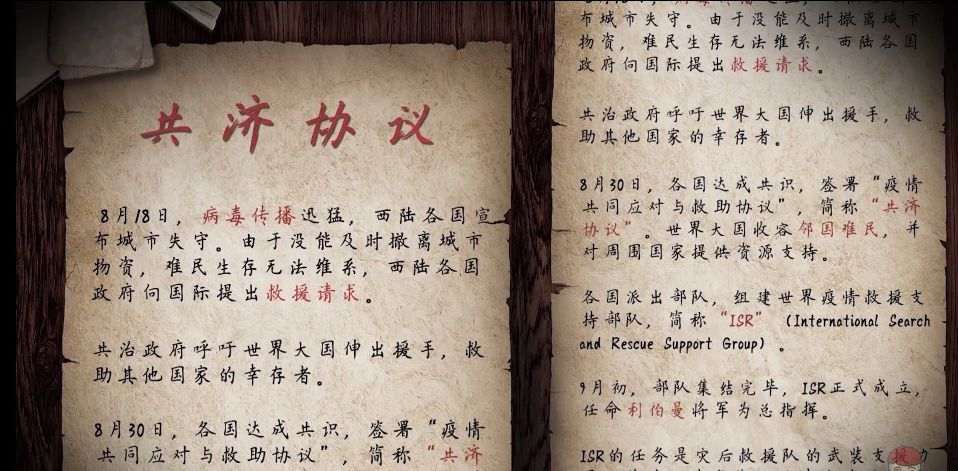 共济协议
8月18日，病毒传播迅猛，西陆各国宣
布城市失守。由于没能及时撤离城市
物资，难民生存无法维系，西陆各国
政府向国际提出救援请求。
共治政府呼吁世界大国伸出援手，救
助其他国家的幸存者。
8月30日，各国达成共识，签署“疫情
共同应对与救助协议”，简称“共济
布城市失守。由于没能及时撤离城市
物资，难民生存无法维系，西陆各国
政府向国际提出救援请求。
共治政府呼吁世界大国伸出援手，救
助其他国家的幸存者。
8月30日，各国达成共识，签署“疫情
共同应对与救助协议”，简称“共济
协议”。世界大国收容邻国难民，并
对周围国家提供资源支持。
各国派出部队，组建世界疫情救援支
持部队，简称“ISR”（International Search
and Rescue Support Group）。
9月初，部队集结完毕，ISR正式成立，
任命利伯曼将军为总指挥。
ISR的任务是灾后救援队的武装支援力